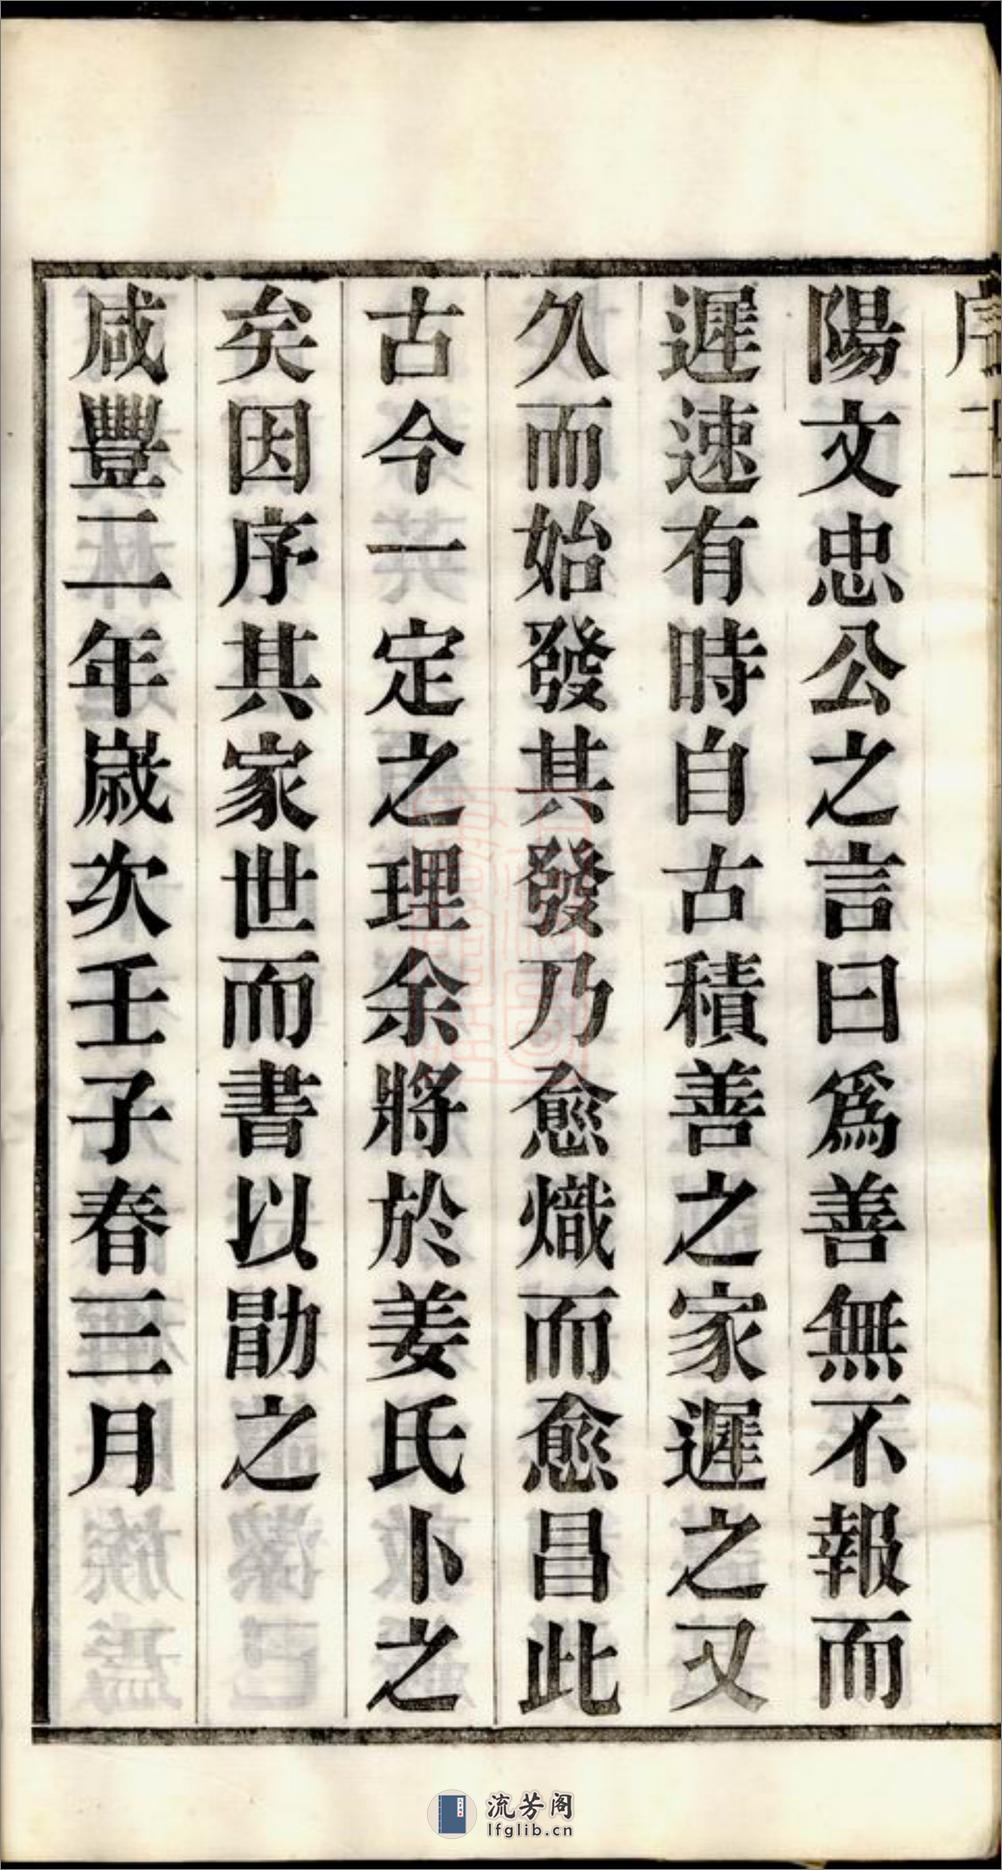 陽文忠公之言曰爲善無不報而
遲速有時自古積善之家遲之又
久而始發其發乃愈熾而愈昌此
古今一定之理余將於姜氏卜之
矣因序其家世而書以勖之
咸豐二年歲次壬子春三月
流芳阁
lfglib.cn